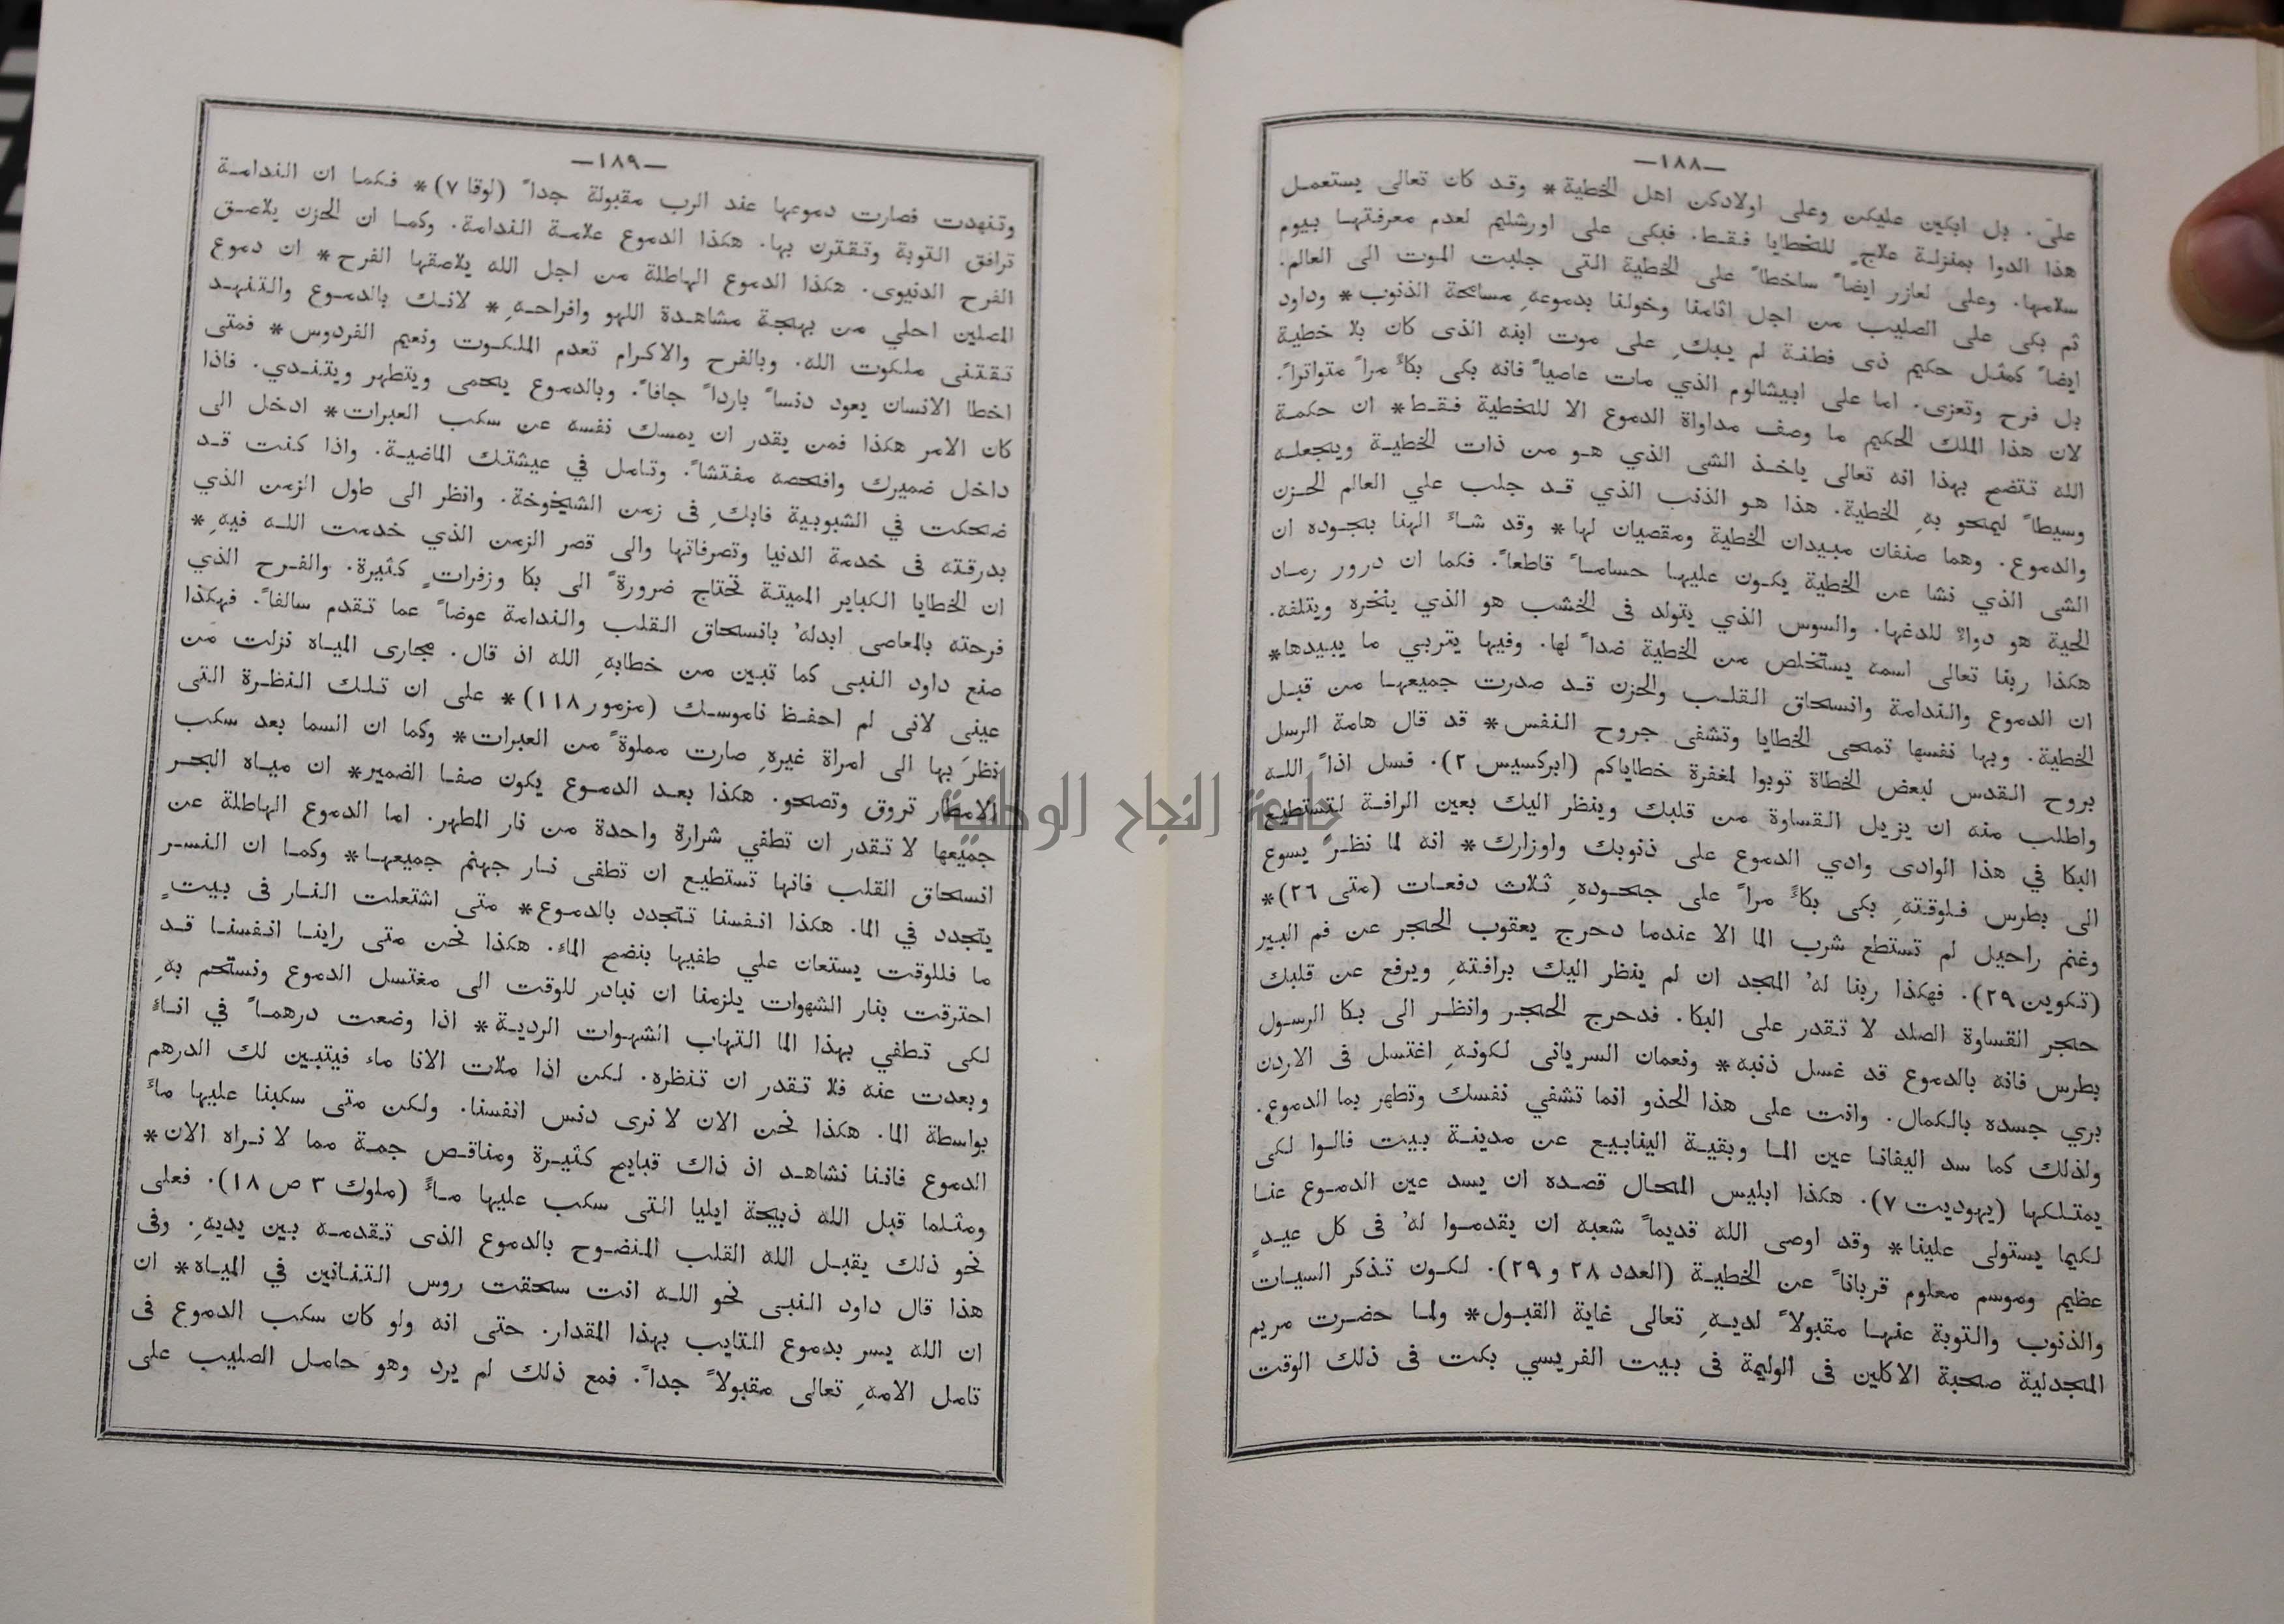 —١٨٨—
عليّ. بل ابكين عليكن وعلى اولادكن اهل الخطية* وقد كان تعالى يستعمل
هذا الدوا بمنزلة علاجٍ للخطايا فقط. فبكى على اورشليم لعدم معرفتها بيوم
سلامها. وعلى لعازر ايضاً ساخطاً على الخطية التى جلبت الموت الى العالم.
ثم بكى على الصليب من اجل اثامنا وخولنا بدموعهِ مسامحة الذنوب* وداود
ايضاً كمثل حكيم ذى فطنة لم يبكِ على موت ابنه الذى كان بلا خطية
بل فرح وتعزى. اما على ابيشالوم الذي مات عاصياً فانه بكى بكاً مراً متواتراً.
لان هذا الملك الحكيم ما وصف مداواة الدموع الا للخطية فقط* ان حكمة
الله تتضح بهذا انه تعالى ياخذ الشى الذي هو من ذات الخطية ويجعله
وسيطاً ليمحو بهِ الخطية. هذا هو الذنب الذي قد جلب علي العالم الحزن
والدموع. وهما صنفان مبيدان الخطية ومقصيان لها* وقد شاً الهنا بجوده ان
الشى الذي نشا عن الخطية يكون عليها حساماً قاطعاً. فكما ان درور رماد
الحية هو دواءٌ للدغها. والسوس الذي يتولد فى الخشب هو الذي ينخره ويتلفه.
هكذا ربنا تعالى اسمه يستخلص من الخطية ضداً لها. وفيها يتربي ما يبيدها*
ان الدموع والندامة وانسحاق القلب والحزن قد صدرت جميعها من قبل
الخطية. وبها نفسها تمحى الخطايا وتشفى جروح النفس* قد قال هامة الرسل
بروح القدس لبعض الخطاة توبوا لمغفرة خطاياكم (ابركسيس ٢). فسل اذاً الله
واطلب منه ان يزيل القساوة من قلبك وينظر اليك بعين الرافة لتستطيع
البكا في هذا الوادى وادي الدموع على ذنوبك واوزارك* انه لما نظرً يسوع
الى بطرس فلوقتهِ بكى بكاً مراً على جحودهِ ثلاث دفعات (متى ٢٦)*
وغنم راحيل لم تستطع شرب الما الا عندما دحرج يعقوب الحجر عن فم البير
(تكوين ٢٩). فهكذا ربنا لهُ المجد ان لم ينظر اليك برافتهِ ويرفع عن قلبك
حجر القساوة الصلد لا تقدر على البكا. فدحرج الحجر وانظر الى بكا الرسول
بطرس فانه بالدموع قد غسل ذنبه* ونعمان السريانى لكونهِ اغتسل فى الاردن
بري جسده بالكمال. وانت على هذا الحذو انما تشفي نفسك وتطهر بما الدموع.
ولذلك كما سد اليفانا عين الما وبقية الينابيع عن مدينة بيت فالوا لكى
يمتلكها (يهوديت ٧). هكذا ابليس المحال قصده ان يسد عين الدموع عنا
لكيما يستولى علينا* وقد اوصى الله قديماً شعبه ان يقدموا لهُ فى كل عيدٍ
عظيم وموسم معلوم قرباناً عن الخطية (العدد ٢٨ و ٢٩). لكون تذكر السيات
والذنوب والتوبة عنها مقبولاً لديهِ تعالى غاية القبول* ولما حضرت مريم
المجدلية صحبة الاكلين فى الوليمة فى بيت الفريسي بكت فى ذلك الوقت
—١٨٩—
وتنهدت فصارت دموعها عند الرب مقبولة جداً (لوقا ٧)* فكما ان الندامة
ترافق التوبة وتقترن بها. هكذا الدموع علامة الندامة. وكما ان الحزن يلاصق
الفرح الدنيوى. هكذا الدموع الهاطلة من اجل الله يلاصقها الفرح* ان دموع
المصلين احلي من بهجة مشاهدة اللهو وافراحهِ* لانك بالدموع والتنهد
تقتنى ملكوت الله. وبالفرح والاكرام تعدم الملكوت ونعيم الفردوس* فمتى
اخطا الانسان يعود دنساً بارداً جافاً. وبالدموع يحمى ويتطهر ويتندي. فاذا
كان الامر هكذا فمن يقدر ان يمسك نفسه عن سكب العبرات* ادخل الى
داخل ضميرك وافحصه مفتشاً. وتامل في عيشتك الماضية. واذا كنت قد
ضحكت في الشبوبية فابكِ فى زمن الشيخوخة. وانظر الى طول الزمن الذي
بدرقته فى خدمة الدنيا وتصرفاتها والى قصر الزمن الذي خدمت الله فيهِ*
ان الخطايا الكباير المميتة تحتاج ضرورةً الى بكا وزفراتٍ كثيرة. والفرح الذي
فرحته بالمعاصى ابدلهُ بانسحاق القلب والندامة عوضاً عما تقدم سالفاً. فهكذا
صنع داود النبى كما تبين من خطابهِ الله اذ قال. مجارى المياه نزلت من
عينىَ لانى لم احفظ ناموسك (مزمور ١١٨)* على ان تلك النظرة التى
نظرَ بها الى امراة غيرهِ صارت مملوةً من العبرات* وكما ان السما بعد سكب
الامطار تروق وتصحو. هكذا بعد الدموع يكون صفا الضمير* ان مياه البحر
جميعها لا تقدر ان تطفي شرارة واحدة من نار المطهر. اما الدموع الهاطلة عن
انسحاق القلب فانها تستطيع ان تطفى نار جهنم جميعها* وكما ان النسر
يتجدد في الما. هكذا انفسنا تتجدد بالدموع* متى اشتعلت النار فى بيتٍ
ما فللوقت يستعان علي طفيها بنضح الماء. هكذا نحن متى راينا انفسنا قد
احترقت بنار الشهوات يلزمنا ان نبادر للوقت الى مغتسل الدموع ونستحم بهِ
لكى تطفي بهذا الما التهاب الشهوات الردية* اذا وضعت درهماً في اناءً
وبعدت عنه فلا تقدر ان تنظره. لكن اذا ملات الانا ماء فيتبين لك الدرهم
بواسطة الما. هكذا نحن الان لا نرى دنس انفسنا. ولكن متى سكبنا عليها ماءً
الدموع فاننا نشاهد اذ ذاك قبايح كثيرة ومناقص جمة مما لا نراه الان*
ومثلما قبل الله ذبيحة ايليا التى سكب عليها ماءً (ملوك ٣ ص ١٨). فعلى
نحو ذلك يقبل الله القلب المنضوح بالدموع الذى تقدمه بين يديهِ. وفى
هذا قال داود النبى نحو الله انت سحقت روس التنانين في المياه* ان
ان الله يسر بدموع التايب بهذا المقدار. حتى انه ولو كان سكب الدموع فى
تامل الامهِ تعالى مقبولاً جداً. فمع ذلك لم يرد وهو حامل الصليب على
جامعة النجاح الوطنية